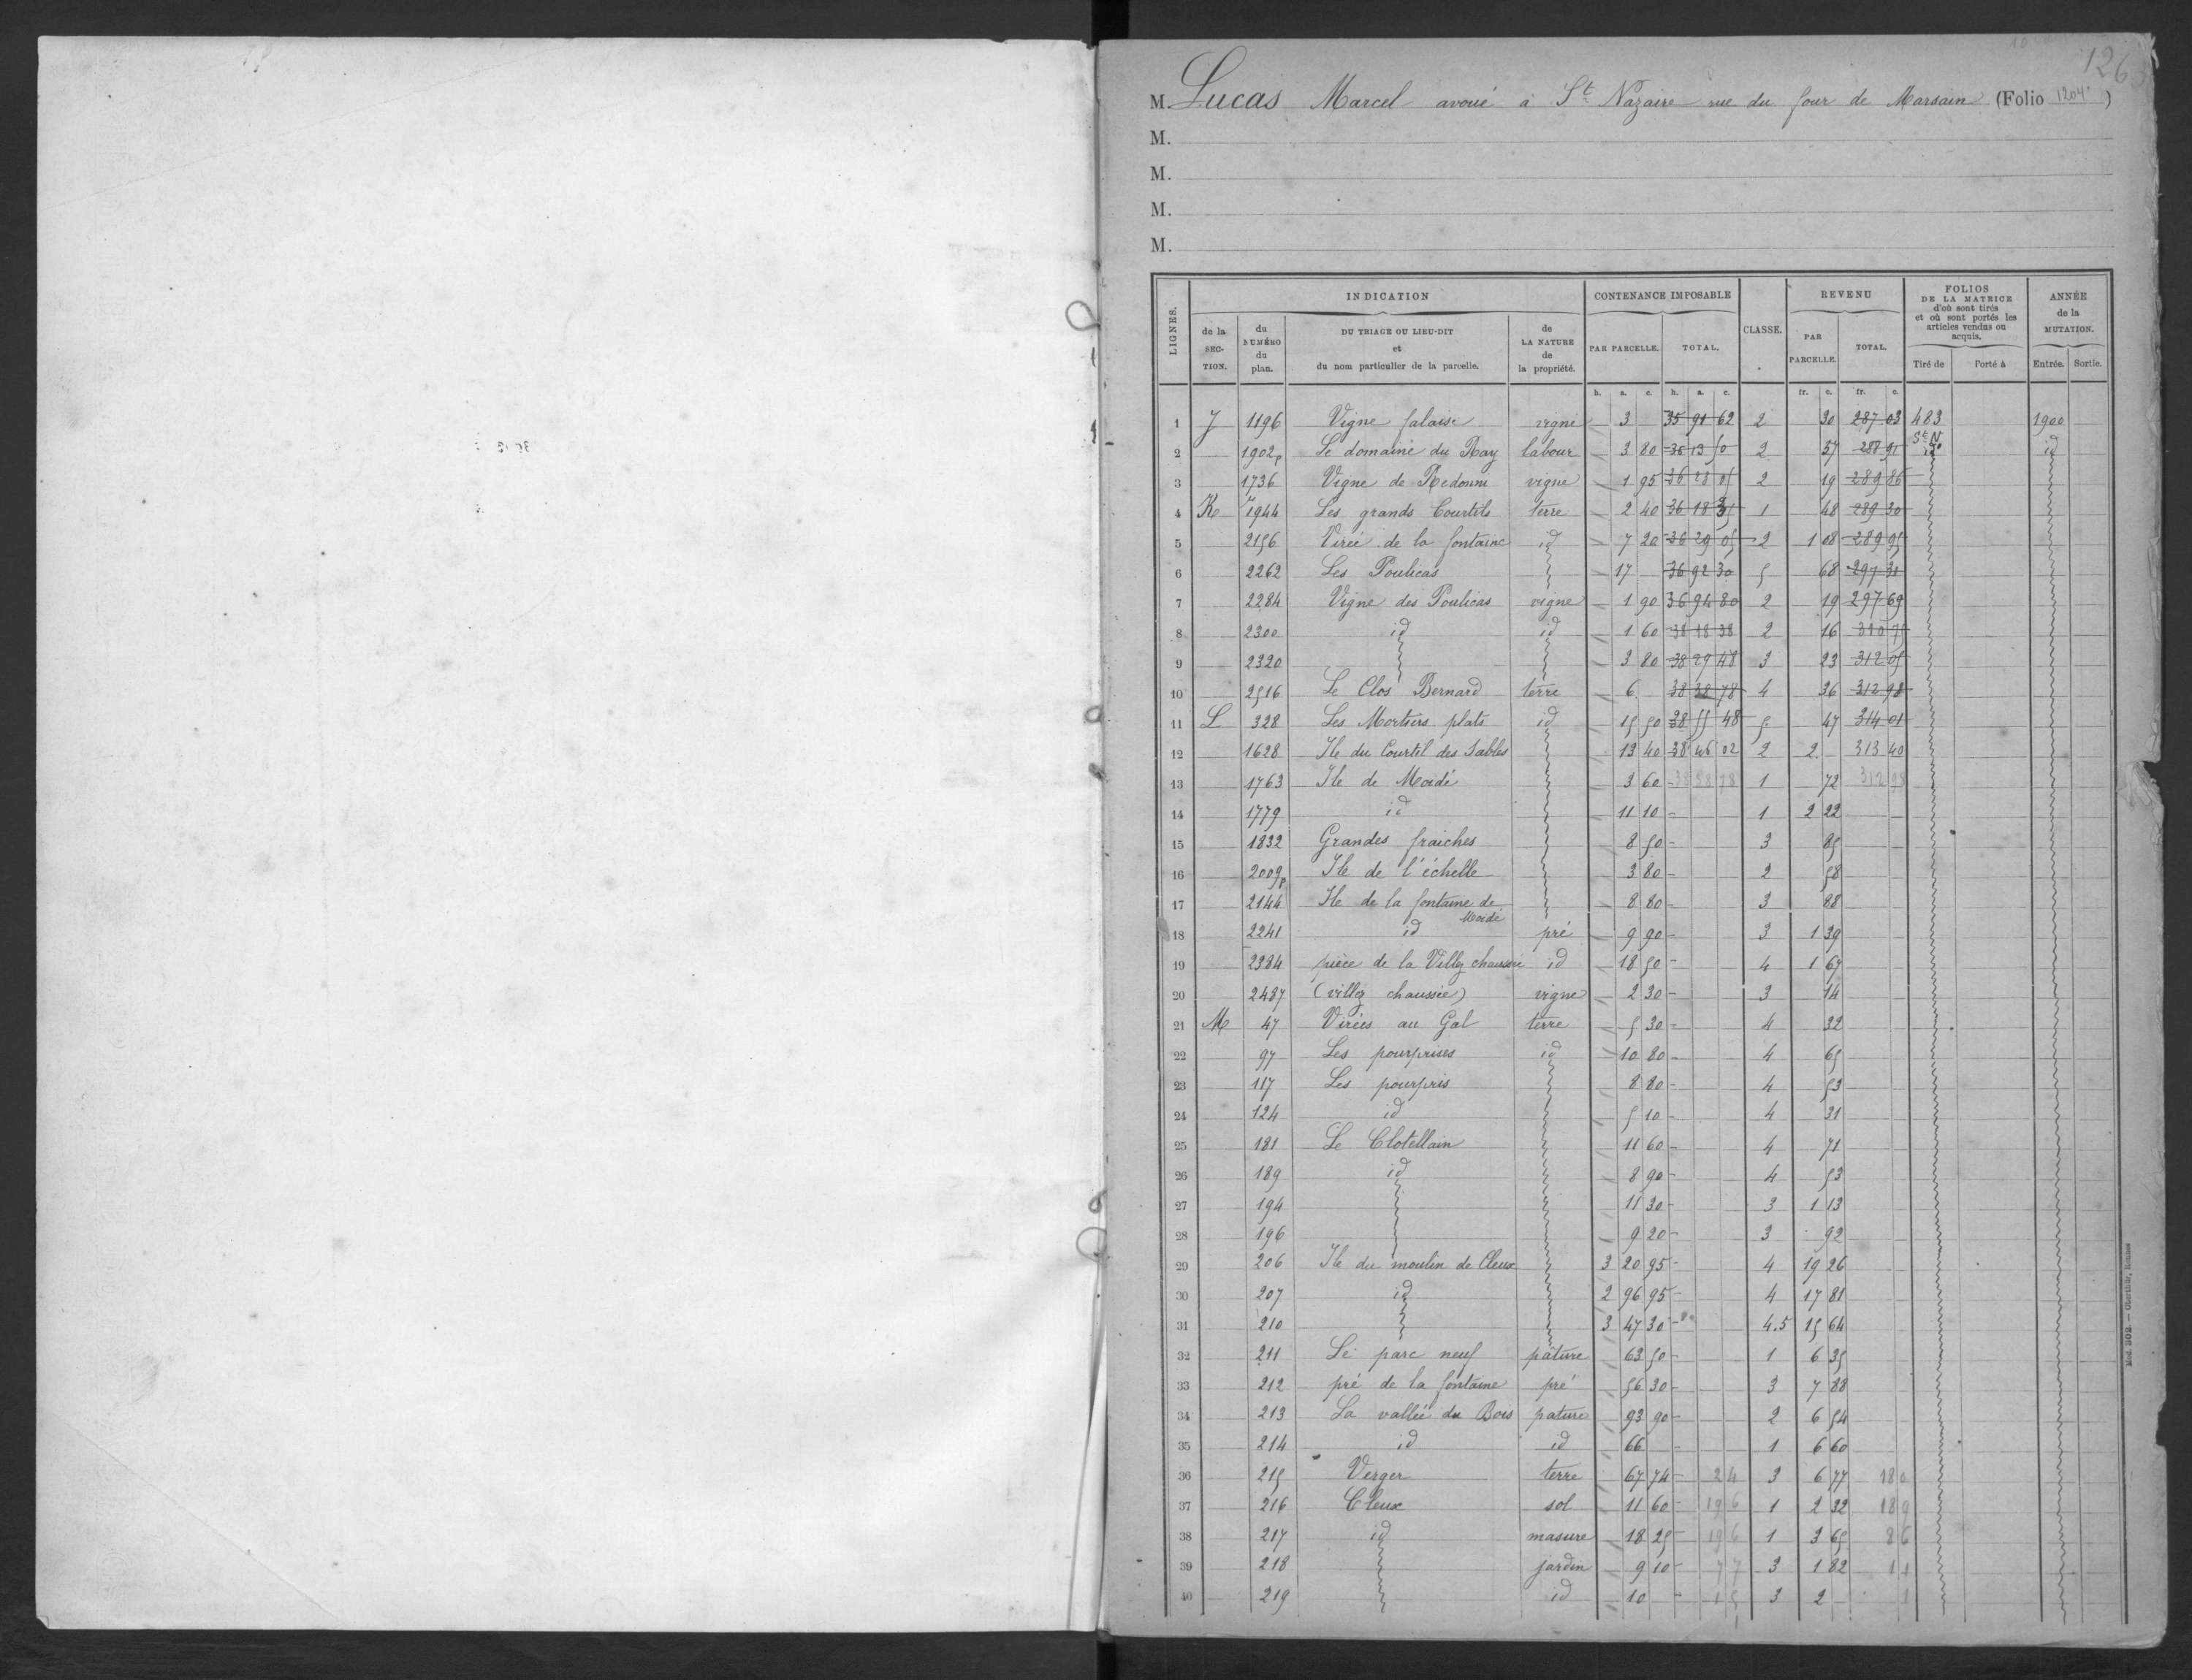 126
M. Lucas Marcel avoué à St Nazaire rue du four de Marsain (Folio 1204)
M.
M.
M.
M.
LIGNES. INDICATION CONTENANCE IMPOSABLE CLASSE. REVENU FOLIOS DE LA MATRICE d'où sont tirés et où sont portés les articles vendus ou acquis. ANNÉE de la MUTATION.
de la SECTION. du NUMÉRO du plan. DU TRIAGE OU LIEU-DIT et du nom particulier de la parcelle. de LA NATURE de la propriété. PAR PARCELLE. TOTAL. PAR PARCELLE. TOTAL. Tiré de Porté à Entrée. Sortie.
h. a. c. h. a. c. fr. c. fr. c.
1 J 1196 Vigne falaise vigne 3 35 91 62 2 30 287 03 483 1900
2 1902p Le domaine du Ray labour 3 80 36 13 50 2 57 288 91 St N id
3 1736 Vigne de Redonne vigne 1 95 36 28 05 2 19 289 86
4 K 1944 Les grands Courtils terre 2 40 36 18 35 1 48 289 30
5 2156 Virée de la fontaine id 7 20 36 29 05 2 1 08 289 95
6 2262 Les Poulicas 17 36 92 30 5 68 297 31
7 2284 Vigne des Poulicas vigne 1 90 36 94 80 2 19 297 69
8 2300 id id 1 60 38 18 38 2 16 310 75
9 2320 3 80 38 29 48 3 23 312 05
10 2516 Le Clos Bernard terre 6 38 38 78 4 36 312 98
11 L 328 Les Mortiers plats id 15 50 38 55 48 5 47 314 01
12 1628 Ile du Courtil des Sables 13 40 38 46 02 2 2 313 40
13 1763 Ile de Mordé 3 60 38 38 78 1 72 312 98
14 1779 id 11 10 1 2 22
15 1832 Grandes fraiches 8 50 3 85
16 2009p Ile de l'échelle 3 80 2 58
17 2144 Ile de la fontaine de Mordé 8 80 3 88
18 2241 id pré 9 90 3 1 39
19 2384 pièce de la Villez chaussée id 18 50 4 1 67
20 2437 (villez chaussée) vigne 2 30 3 14
21 M 47 Virées au Gal terre 5 30 4 32
22 97 Les pourprises id 10 80 4 65
23 117 Les pourpris 8 80 4 53
24 124 id 5 10 4 31
25 181 Le Clotellain 11 60 4 71
26 189 id 8 90 4 53
27 194 11 30 3 1 13
28 196 9 20 3 92
29 206 Ile du moulin de Cleux 3 20 95 4 19 26
30 207 id 2 96 95 4 17 81
31 210 3 47 30 4.5 15 64
32 211 Le parc neuf pâture 63 50 1 6 35
33 212 pré de la fontaine pré 56 30 3 7 88
34 213 La vallée du Bois pature 93 90 2 6 54
35 214 id id 66 1 6 60
36 215 Verger terre 67 74 24 3 6 77 180
37 216 Cleux sol 11 60 196 1 2 32 189
38 217 id masure 18 25 196 1 3 65 86
39 218 jardin 9 10 77 3 1 82 11
40 219 id 10 3 2
Mod. 302 — Oberthür, Rennes